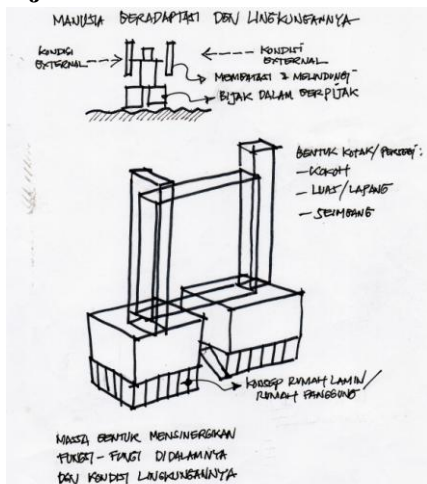 MANUSIA BERADAPTASI DGN LINGKUNGANNYA
KONDISI
EXTERNAL
KONDISI
EXTERNAL
MEMBATASI & MELINDUNGI
BIJAK DALAM BERPIJAK
BENTUK KOTAK/PERSEGI:
- KOKOH
- LUAS/LAPANG
- SEIMBANG
KONSEP RUMAH LAMIN/
RUMAH PANGGUNG
MASSA BENTUK MENSINERGIKAN
FUNGSI-FUNGSI DIDALAMNYA
DGN KONDISI LINGKUNGANNYA